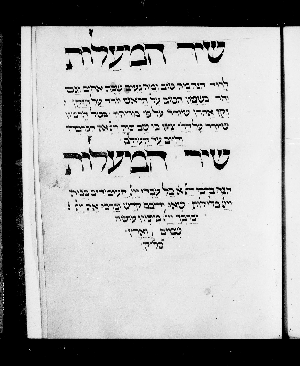 שיר המעלות
לדוד הנה מה טוב ומה נעים שבת אחים גם
יחד כשמן הטוב על הראש יורד על הזקן
זקן אהרן שיורד על פי מדותיו כטל חרמון
שיורד על הררי ציון כי שם צוה את הברכה
חיים עד העולם
שיר המעלות
הנה ברכו את כל עבדי העומדים בבית
בלילות שאו ידכם קדש וברכו את
יברכך מציון עושה
שמים וארץ
סליק